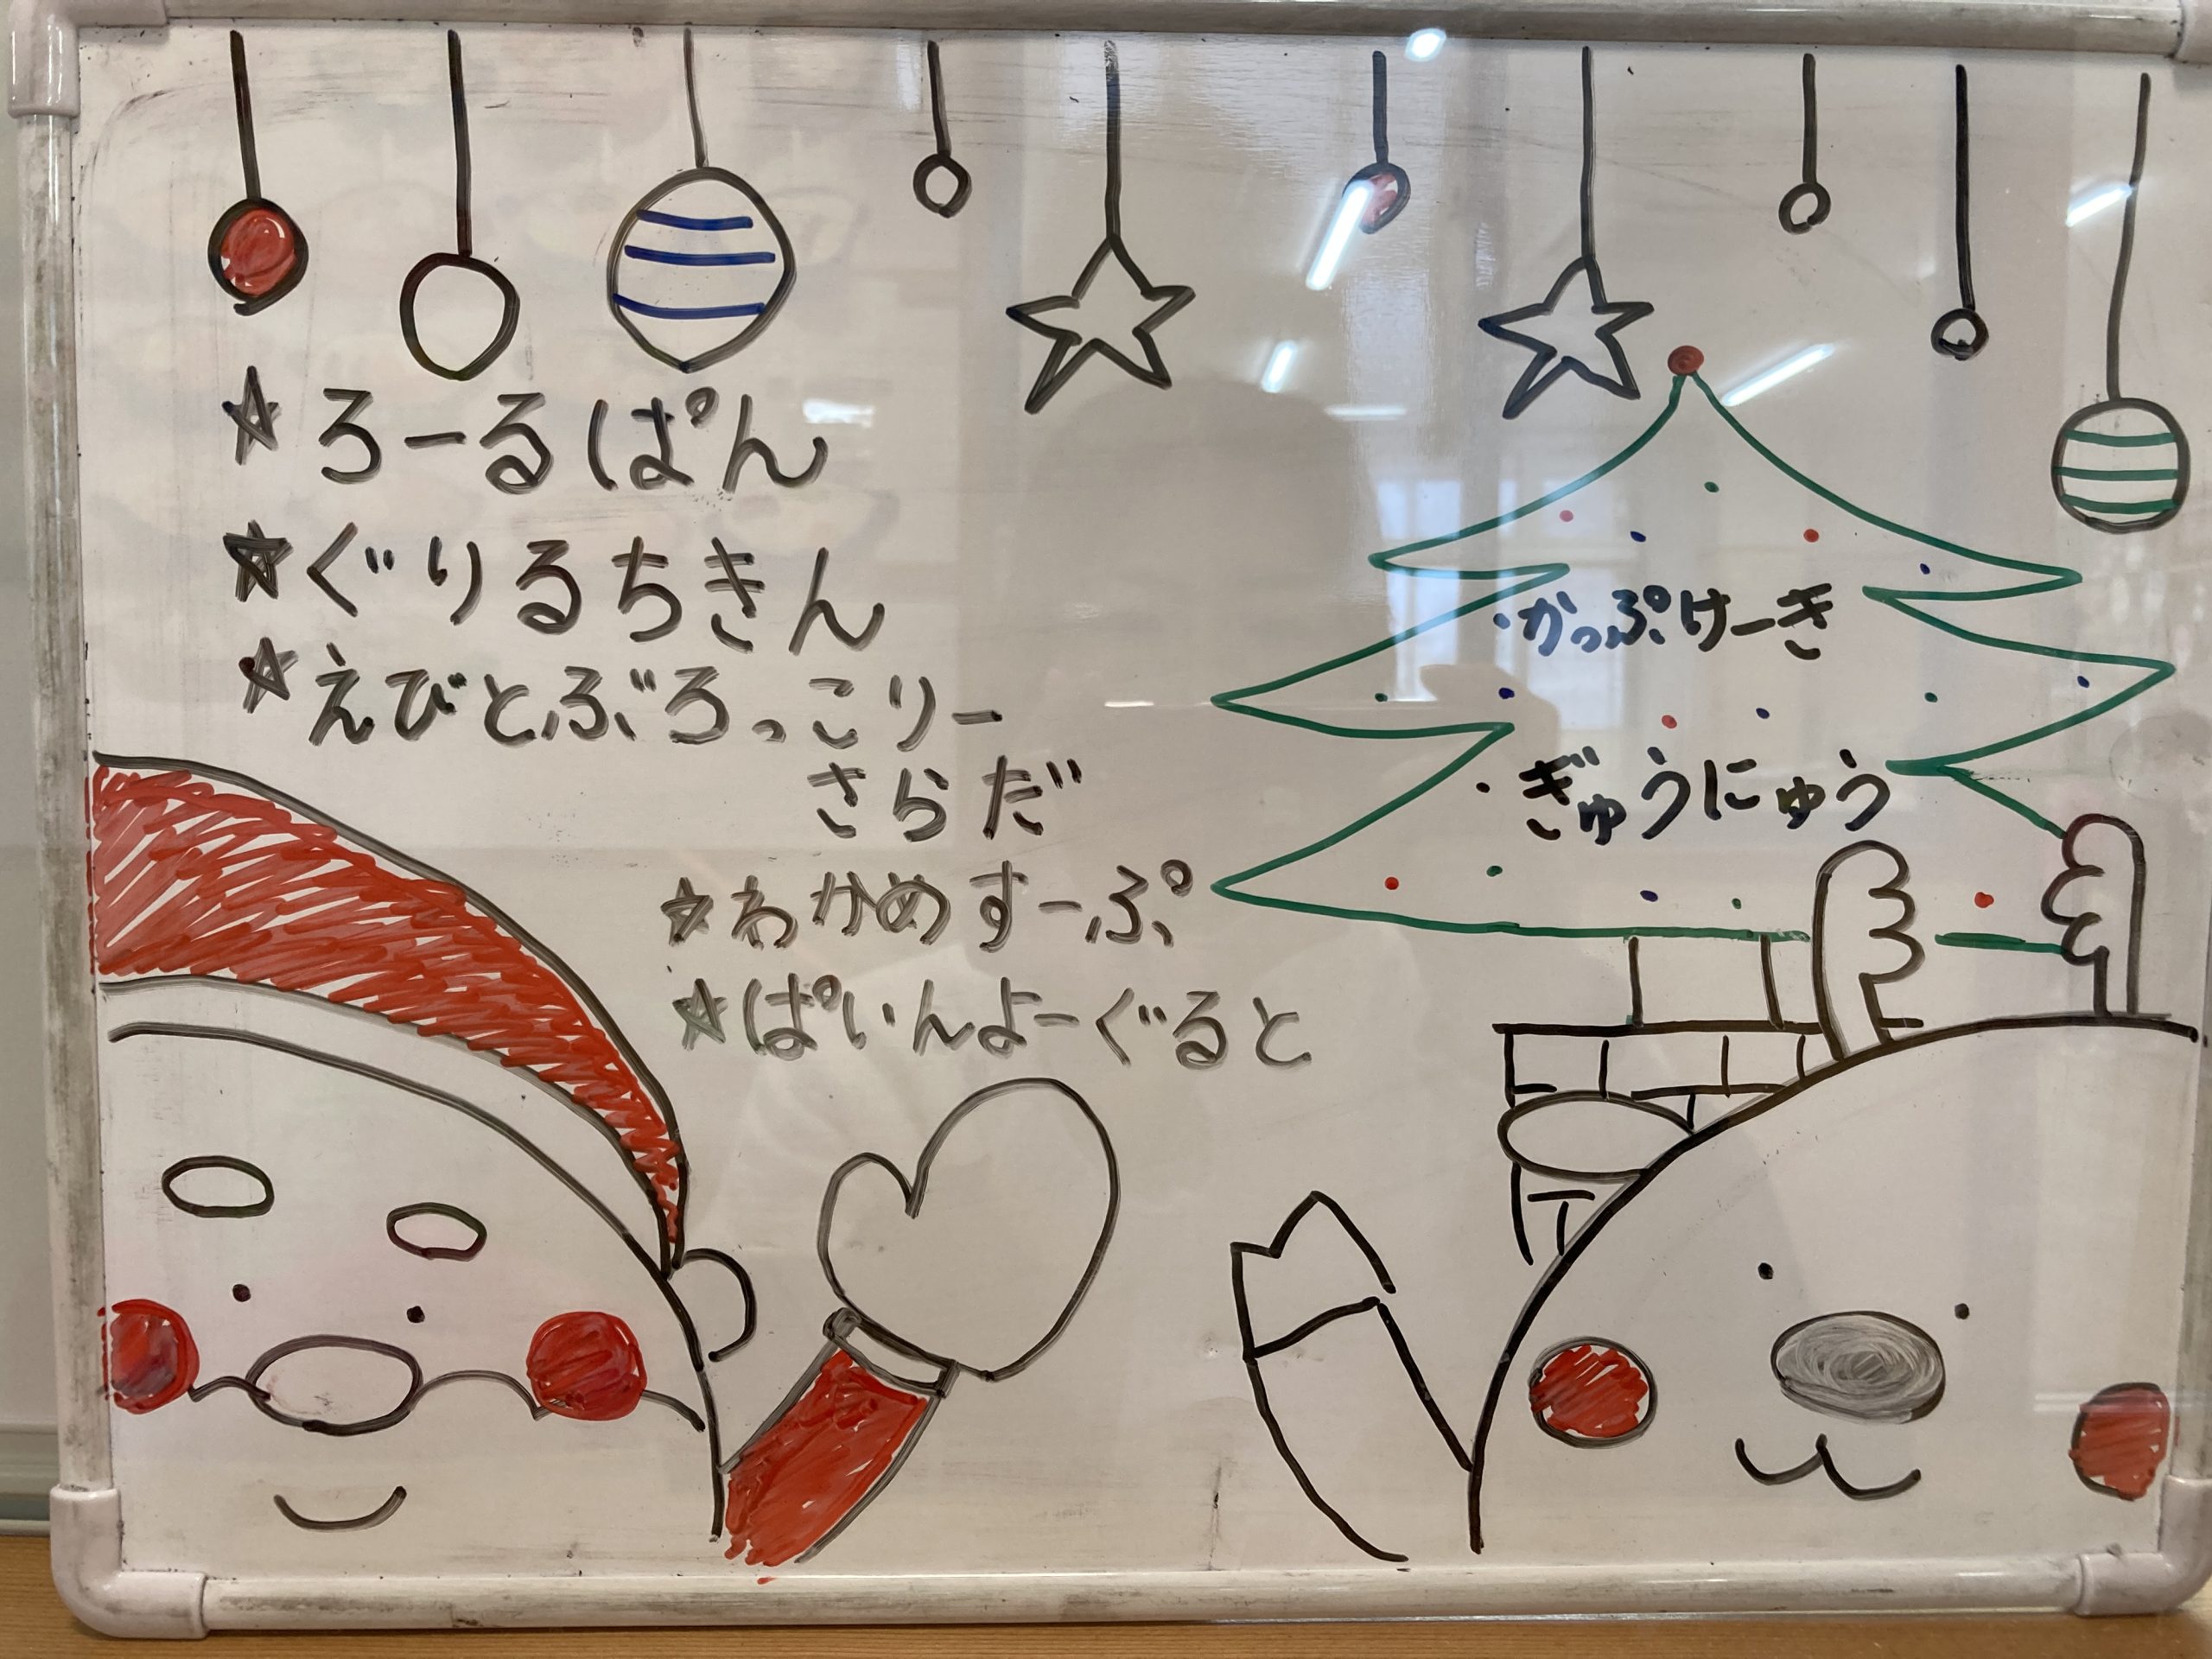 ☆ろーるぱん
☆ぐりるちきん
☆えびとぶろっこりー
さらだ
☆わかめすーぷ
☆ぱいんよーぐると
・かっぷけーき
・ぎゅうにゅう